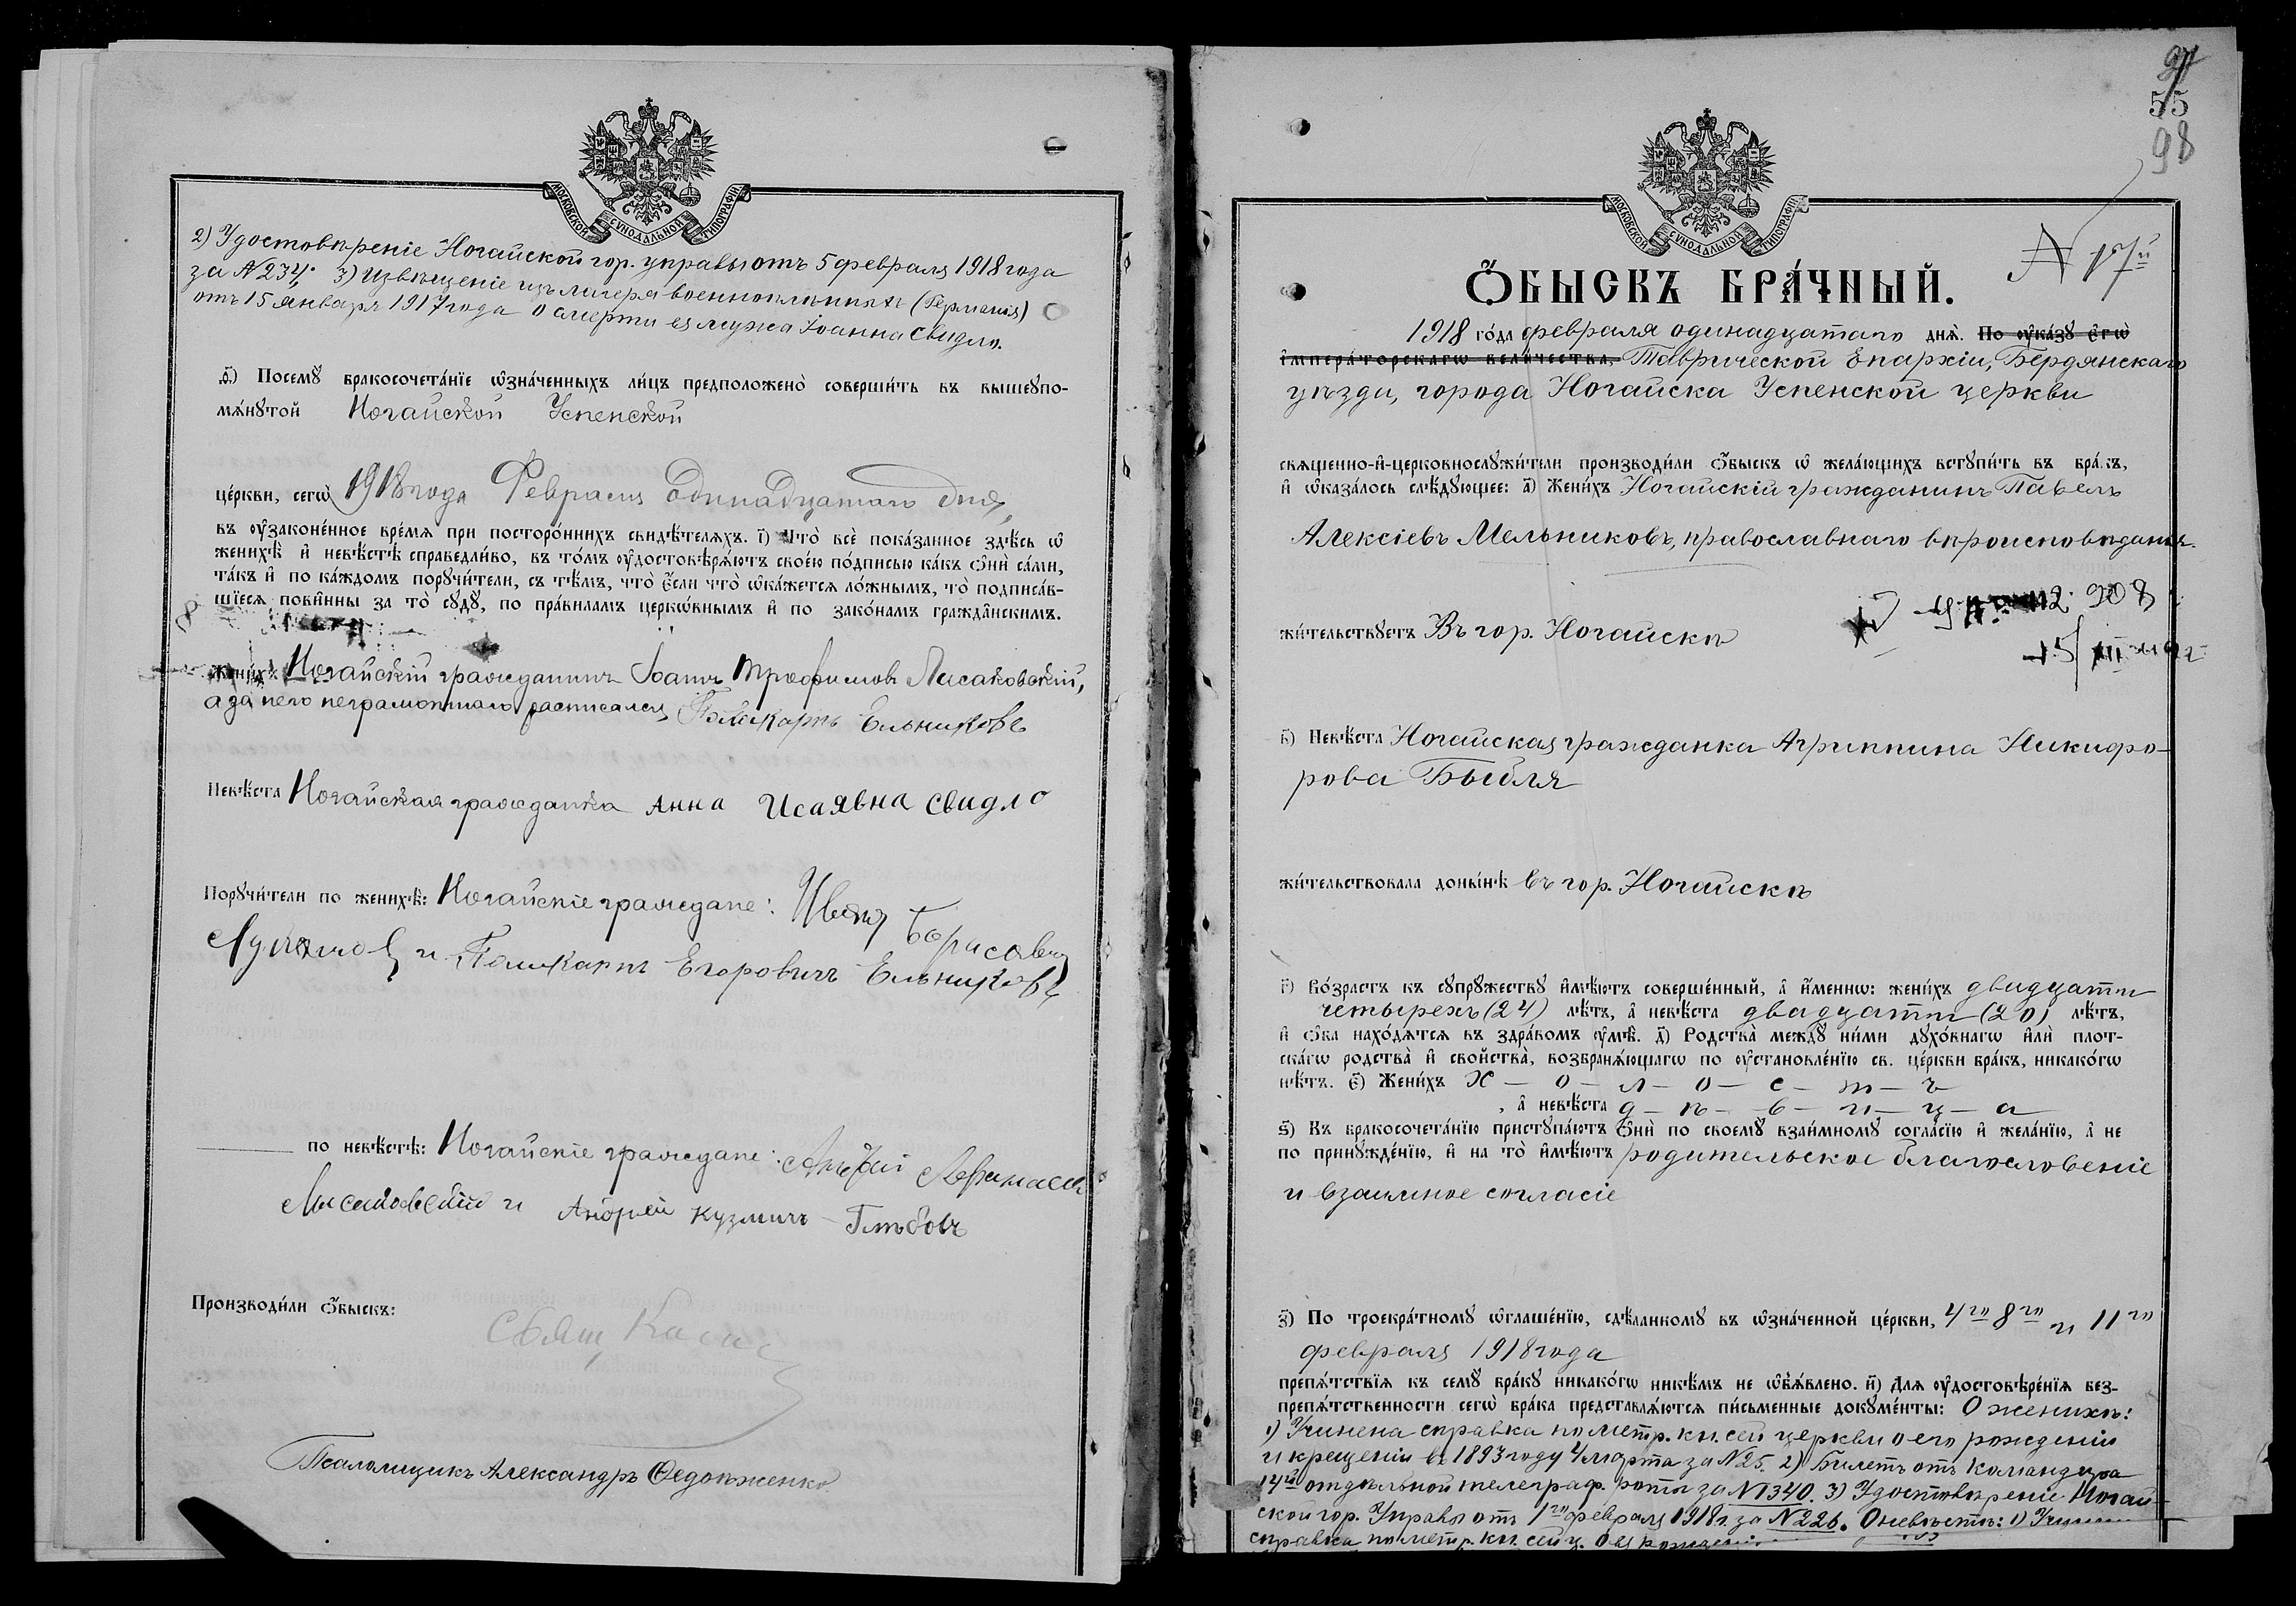 МОСКОВСКОЙ СѴНОДАЛЬНОЙ ТИПОГРАФІИ
2) Удостовѣреніе Ногайской гор. управы отъ 5 февраля 1918 года
за N 234; 3) Извѣщеніе изъ лагеря военноплѣнныхъ (Германія)
отъ 15 Января 1917 года о смерти ея мужа Іоанна Свидло.
д҃) Посемꙋ̀ бракосочета́нїе ѡ҆зна́ченныхъ ли́цъ предположено̀ соверши́ть въ вышеꙋпо-
мѧ́нꙋтой Ногайской Успенской
це́ркви, сегѡ̀ 1918 года Февраля Одинадцатаго дня,
въ ᲂу҆законе́нное вре́мѧ при посторо́ннихъ свидѣ́телѧхъ. і҃) Что̀ всѐ пока́занное здѣ́сь ѡ҆
женихѣ̀ и҆ невѣ́стѣ справедли́во, въ то́мъ ᲂу҆достовѣрѧ́ютъ свое́ю по́дписью ка́къ ѻ҆нѝ са́ми,
та́къ и҆ по ка́ждомъ порꙋчи́тели, съ тѣ́мъ, что̀ є҆́сли что̀ ѡ҆ка́жетсѧ ло́жнымъ, то̀ подписа́в-
шїесѧ пови́нны за то̀ сꙋдꙋ̀, по пра́виламъ церкѡ́внымъ и҆ по зако́намъ гражда́нскимъ.
жени́хъ Ногайскій гражданинъ Іоанъ Трофимовъ Лисаковскій,
а за него неграмотнаго расписался Поликарпъ Ельниковъ
Невѣ́ста Ногайская гражданка Анна Исаявна Свидло
Порꙋчи́тели по женихѣ̀: Ногайскіе граждане: Иванъ Борисовичъ
и Поликарпъ Егоровичъ Ельниковъ
по невѣ́стѣ: Ногайскіе граждане: Андрей
Лисаковскій и Андрей Кузмичъ Глѣбовъ
Производи́ли ѻ҆́быскъ:
Свящ.
Псаломщикъ Александръ Ѳедоѣженко.
97
55
98
МОСКОВСКОЙ СѴНОДАЛЬНОЙ ТИПОГРАФІИ
N 17й
Ѻ҆БЫСКЪ БРА́ЧНЫЙ.
1918 го́да февраля одинадцатаго днѧ̀. По ᲂу҆ка́зꙋ є҆гѡ̀
і҆мпера́торскагѡ вели́чества, Таврической Епархіи, Бердянскаго
уѣзда, города Ногайска Успенской церкви
свѧще́нно-и҆-церковнослꙋжи́тели производи́ли ѻ҆́быскъ ѡ҆ жела́ющихъ встꙋпи́ть въ бра́къ,
и҆ ѡ҆каза́лось слѣ́дꙋющее: а҃) Жени́хъ Ногайскій гражданинъ Павелъ
Алексіевъ Мельниковъ, православнаго вѣроисповѣданія.
жи́тельствꙋетъ Въ гор. Ногайскѣ
в҃) Невѣ́ста Ногайская гражданка Агриппина Никифо-
рова Быбля
жи́тельствовала доны́нѣ въ гор. Ногайскѣ
г҃) Во́зрастъ къ сꙋпрꙋ́жествꙋ и҆мѣ́ютъ соверше́нный, а҆ и҆́меннѡ: жени́хъ двадцати
четырехъ (24) лѣ́тъ, а҆ невѣ́ста двадцати (20) лѣ́тъ,
и҆ ѻ҆́ба нахо́дѧтсѧ въ здра́вомъ ᲂу҆мѣ̀. д҃) Родства̀ междꙋ̀ ни́ми дꙋхо́внагѡ и҆лѝ плот-
ска́гѡ родства̀ и҆ свойства̀, возбранѧ́ющагѡ по ᲂу҆становле́нїю св. це́ркви бра́къ, никако́гѡ
нѣ́тъ. є҃) Жени́хъ х – о – л – о – с – т – ъ
, а҆ невѣ́ста д – ѣ – в – и – ц – а
ѕ҃) Къ бракосочета́нїю пристꙋпа́ютъ ѻ҆нѝ по своемꙋ̀ взаи́мномꙋ согла́сїю и҆ жела́нїю, а҆ не
по принꙋжде́нїю, и҆ на то̀ и҆мѣ́ютъ родительское благословеніе
и взаимное согласіе
з҃) По троекра́тномꙋ ѡ҆глаше́нїю, сдѣ́ланномꙋ въ ѡ҆зна́ченной це́ркви, 4го 8го и 11го
февраля 1918 года
препѧ́тствїѧ къ семꙋ̀ бра́кꙋ никако́гѡ никѣ́мъ не ѡ҆б̾ѧ́влено. и҃) Длѧ ᲂу҆достовѣре́нїѧ без-
препѧ́тственности сегѡ̀ бра́ка представлѧ́ютсѧ пи́сьменные докꙋме́нты: О женихѣ:
1) Учинена справка по метр. кн. сей церкви о его рожденіи
и крещеніи въ 1893 году 4 марта за N 25. 2) Билетъ отъ Командира
14й отдѣльной телеграф. роты за N 1340. 3) Удостовѣреніе Ногай-
ской гор. Управы отъ 1го февраля 1918 г. за N 226. О невѣстѣ: 1) Учинена
справка по метр. кн. сей ц. о ея рожденіи